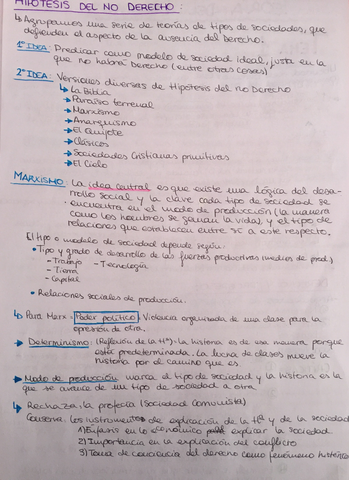 HIPÓTESIS DEL NO DERECHO:
↳ Agrupamos una serie de teorías de tipos de sociedades, que
defienden el aspecto de la ausencia del derecho.
1ª IDEA: Predicar como modelo de sociedad ideal, justa en la
que no habrá Derecho (entre otras cosas)
2ª IDEA: Versiones diversas de Hipótesis del no Derecho
↳ La Biblia
→ Paraíso terrenal
→ Marxismo
→ Anarquismo
→ El Quijote
→ Clásicos
→ Sociedades Cristianas primitivas
→ El Cielo
MARXISMO: La idea central es que existe una lógica del desa-
rrollo social y la clave cada tipo de sociedad se
encuentra en el modo de producción (la manera
como los hombres se ganan la vida) y el tipo de
relaciones que establecen entre sí a este respecto.
El tipo o modelo de sociedad depende según:
• Tipo y grado de desarrollo de las fuerzas productivas (medios de prod.)
- Trabajo - Tecnología
- Tierra
- Capital
• Relaciones sociales de producción.
↳ Para Marx: Poder político: Violencia organizada de una clase para la
opresión de otra.
→ Determinismo: (Reflexión de la Hª): la historia es de esa manera porque
está predeterminada. La lucha de clases mueve la
historia por el camino que es.
→ Modo de producción: marca el tipo de sociedad y la historia es la
que avance de un tipo de sociedad a otra.
↳ Rechaza: la profecía (Sociedad Comunista)
Conserva: los instrumentos de explicación de la Hª y de la sociedad
1) Énfasis en lo económico explicar la sociedad
2) Importancia en la explicación del conflicto
3) Toma de conciencia del derecho como fenómeno histórico